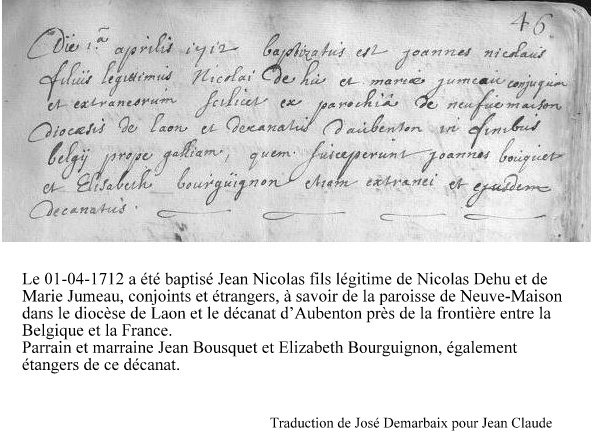 46.
Die 1.a aprilis 1712 baptizatus est joannes nicolaus
filius legitimus Nicolai De hu et mariæ jumeau conjugum
et extraneorum scilicet ex parochiâ de neufue maison
diocæsis de laon et decanatus d'aubenton in finibus
belgÿ prope galliam, quem susceperunt joannes bouquet
et Elisabeth bourguignon etiam extranei et ejusdem
decanatus.
Le 01-04-1712 a été baptisé Jean Nicolas fils légitime de Nicolas Dehu et de
Marie Jumeau, conjoints et étrangers, à savoir de la paroisse de Neuve-Maison
dans le diocèse de Laon et le décanat d'Aubenton près de la frontière entre la
Belgique et la France.
Parrain et marraine Jean Bousquet et Elizabeth Bourguignon, également
étangers de ce décanat.
Traduction de José Demarbaix pour Jean Claude